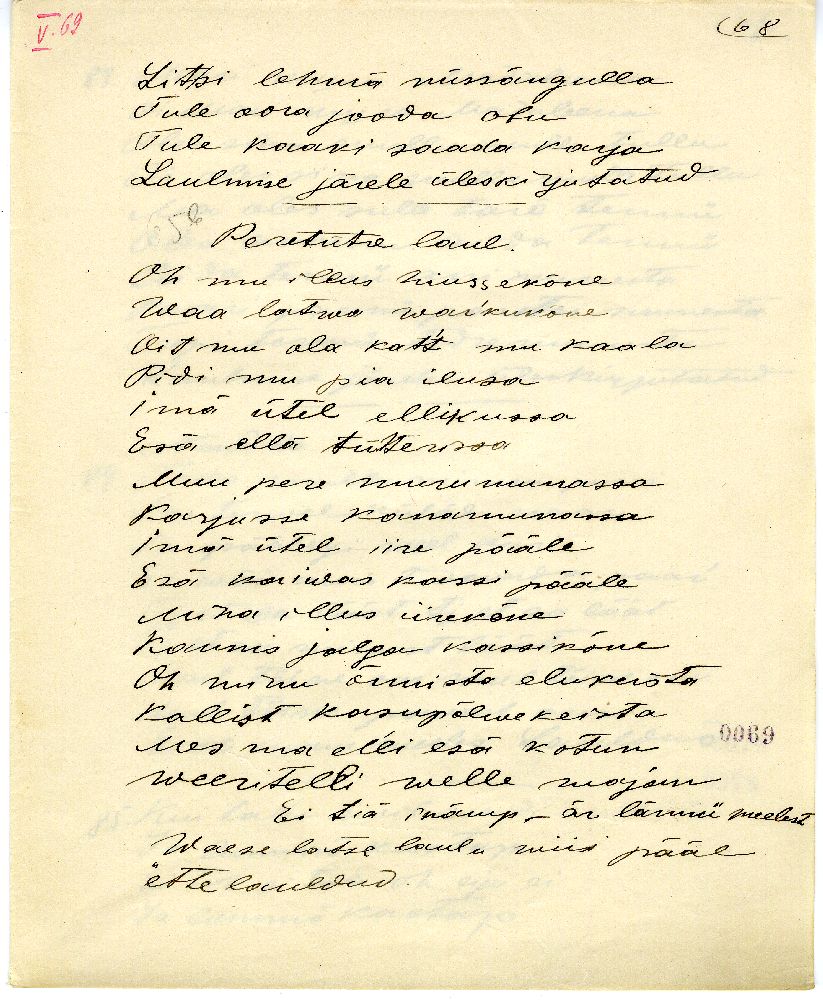 V.69
68
Litsi lehmä nissängulla
Tule oora jooda olu
Tule kaaki saada karja
Laulmise järele üleskirjutatud
56
Peretütre laul.
Oh mu illus hiussekõne
Waa latwa waikukõne
Oit mu ola katt mu kaala
Pidi mu pia ilusa
imä ütel ellikussa
Esä ellä tütterissa
Muu pere murumunassa
Karjusse kanamunassa
imä ütel iire pääle
Esä kaiwas kassi pääle
Mina illus iirekõne
Kaunis jalga kassikõne
Oh minu õnnista elukeista
Kallist kasupõlwekeista
0069
Mes ma elli esä kotun
weeritelli welle majan
Ei tiä inämp – är lännü meelest
Waese latse laulu wiisi pääl
ette lauldud.